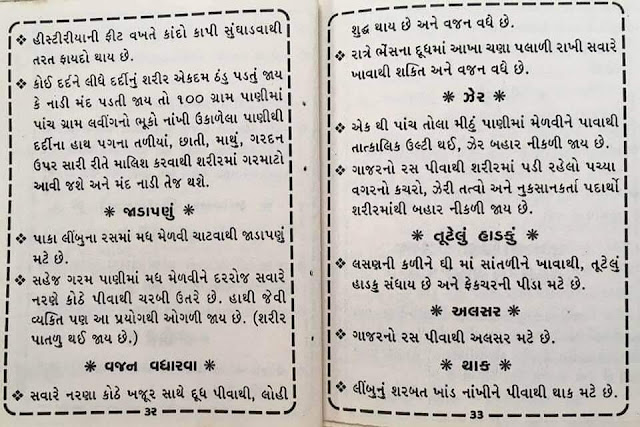 ❖ હીસ્ટીરીયાની ફીટ વખતે કાંદો કાપી સુંઘાડવાથી
તરત ફાયદો થાય છે.
❖ કોઈ દર્દને લીધે દર્દીનું શરીર એકદમ ઠંડુ પડતું જાય
કે નાડી મંદ પડતી જાય તો ૧૦૦ ગ્રામ પાણીમાં
પાંચ ગ્રામ લવીંગનો ભૂકો નાંખી ઉકાળેલા પાણીથી
દર્દીના હાથ પગના તળીયાં, છાતી, માથું, ગરદન
ઉપર સારી રીતે માલિશ કરવાથી શરીરમાં ગરમાટો
આવી જશે અને મંદ નાડી તેજ થશે.
❋ જાડાપણું ❋
❖ પાકા લીંબુના રસમાં મધ મેળવી ચાટવાથી જાડાપણું
મટે છે.
❖ સહેજ ગરમ પાણીમાં મધ મેળવીને દરરોજ સવારે
નરણે કોઠે પીવાથી ચરબી ઉતરે છે. હાથી જેવી
વ્યક્તિ પણ આ પ્રયોગથી ઓગળી જાય છે. (શરીર
પાતળુ થઈ જાય છે.)
❋ વજન વધારવા ❋
❖ સવારે નરણા કોઠે ખજૂર સાથે દૂધ પીવાથી, લોહી
૩૨
શુદ્ધ થાય છે અને વજન વધે છે.
❖ રાત્રે ભેંસના દૂધમાં આખા ચણા પલાળી રાખી સવારે
ખાવાથી શકિત અને વજન વધે છે.
❋ ઝેર ❋
❖ એક થી પાંચ તોલા મીઠું પાણીમાં મેળવીને પાવાથી
તાત્કાલિક ઉલ્ટી થઈ, ઝેર બહાર નીકળી જાય છે.
❖ ગાજરનો રસ પીવાથી શરીરમાં પડી રહેલો પચ્યા
વગરનો કચરો, ઝેરી તત્વો અને નુકસાનકર્તા પદાર્થો
શરીરમાંથી બહાર નીકળી જાય છે.
❋ તૂટેલું હાડકું ❋
❖ લસણની કળીને ઘી માં સાંતળીને ખાવાથી, તૂટેલું
હાડકુ સંધાય છે અને ફેકચરની પીડા મટે છે.
❋ અલસર ❋
❖ ગાજરનો રસ પીવાથી અલસર મટે છે.
❋ થાક ❋
❖ લીંબુનું શરબત ખાંડ નાંખીને પીવાથી થાક મટે છે.
૩૩